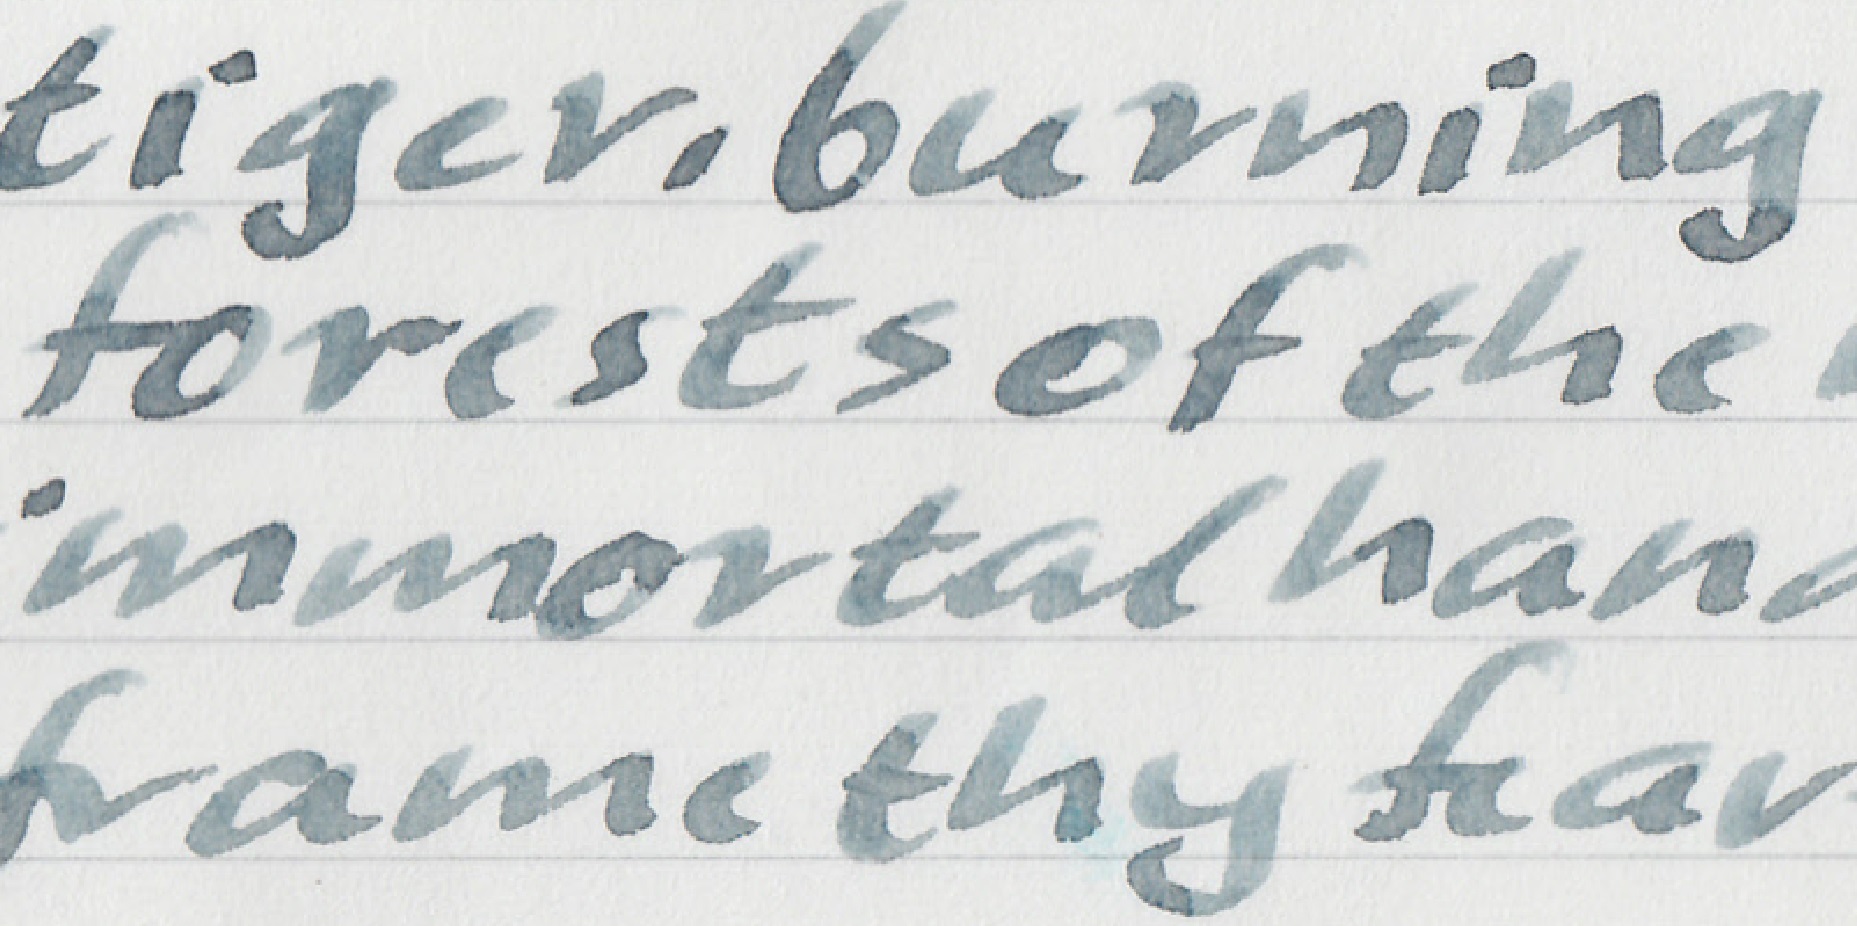 tiger, burning
forests of the
immortal hand
frame thy fear